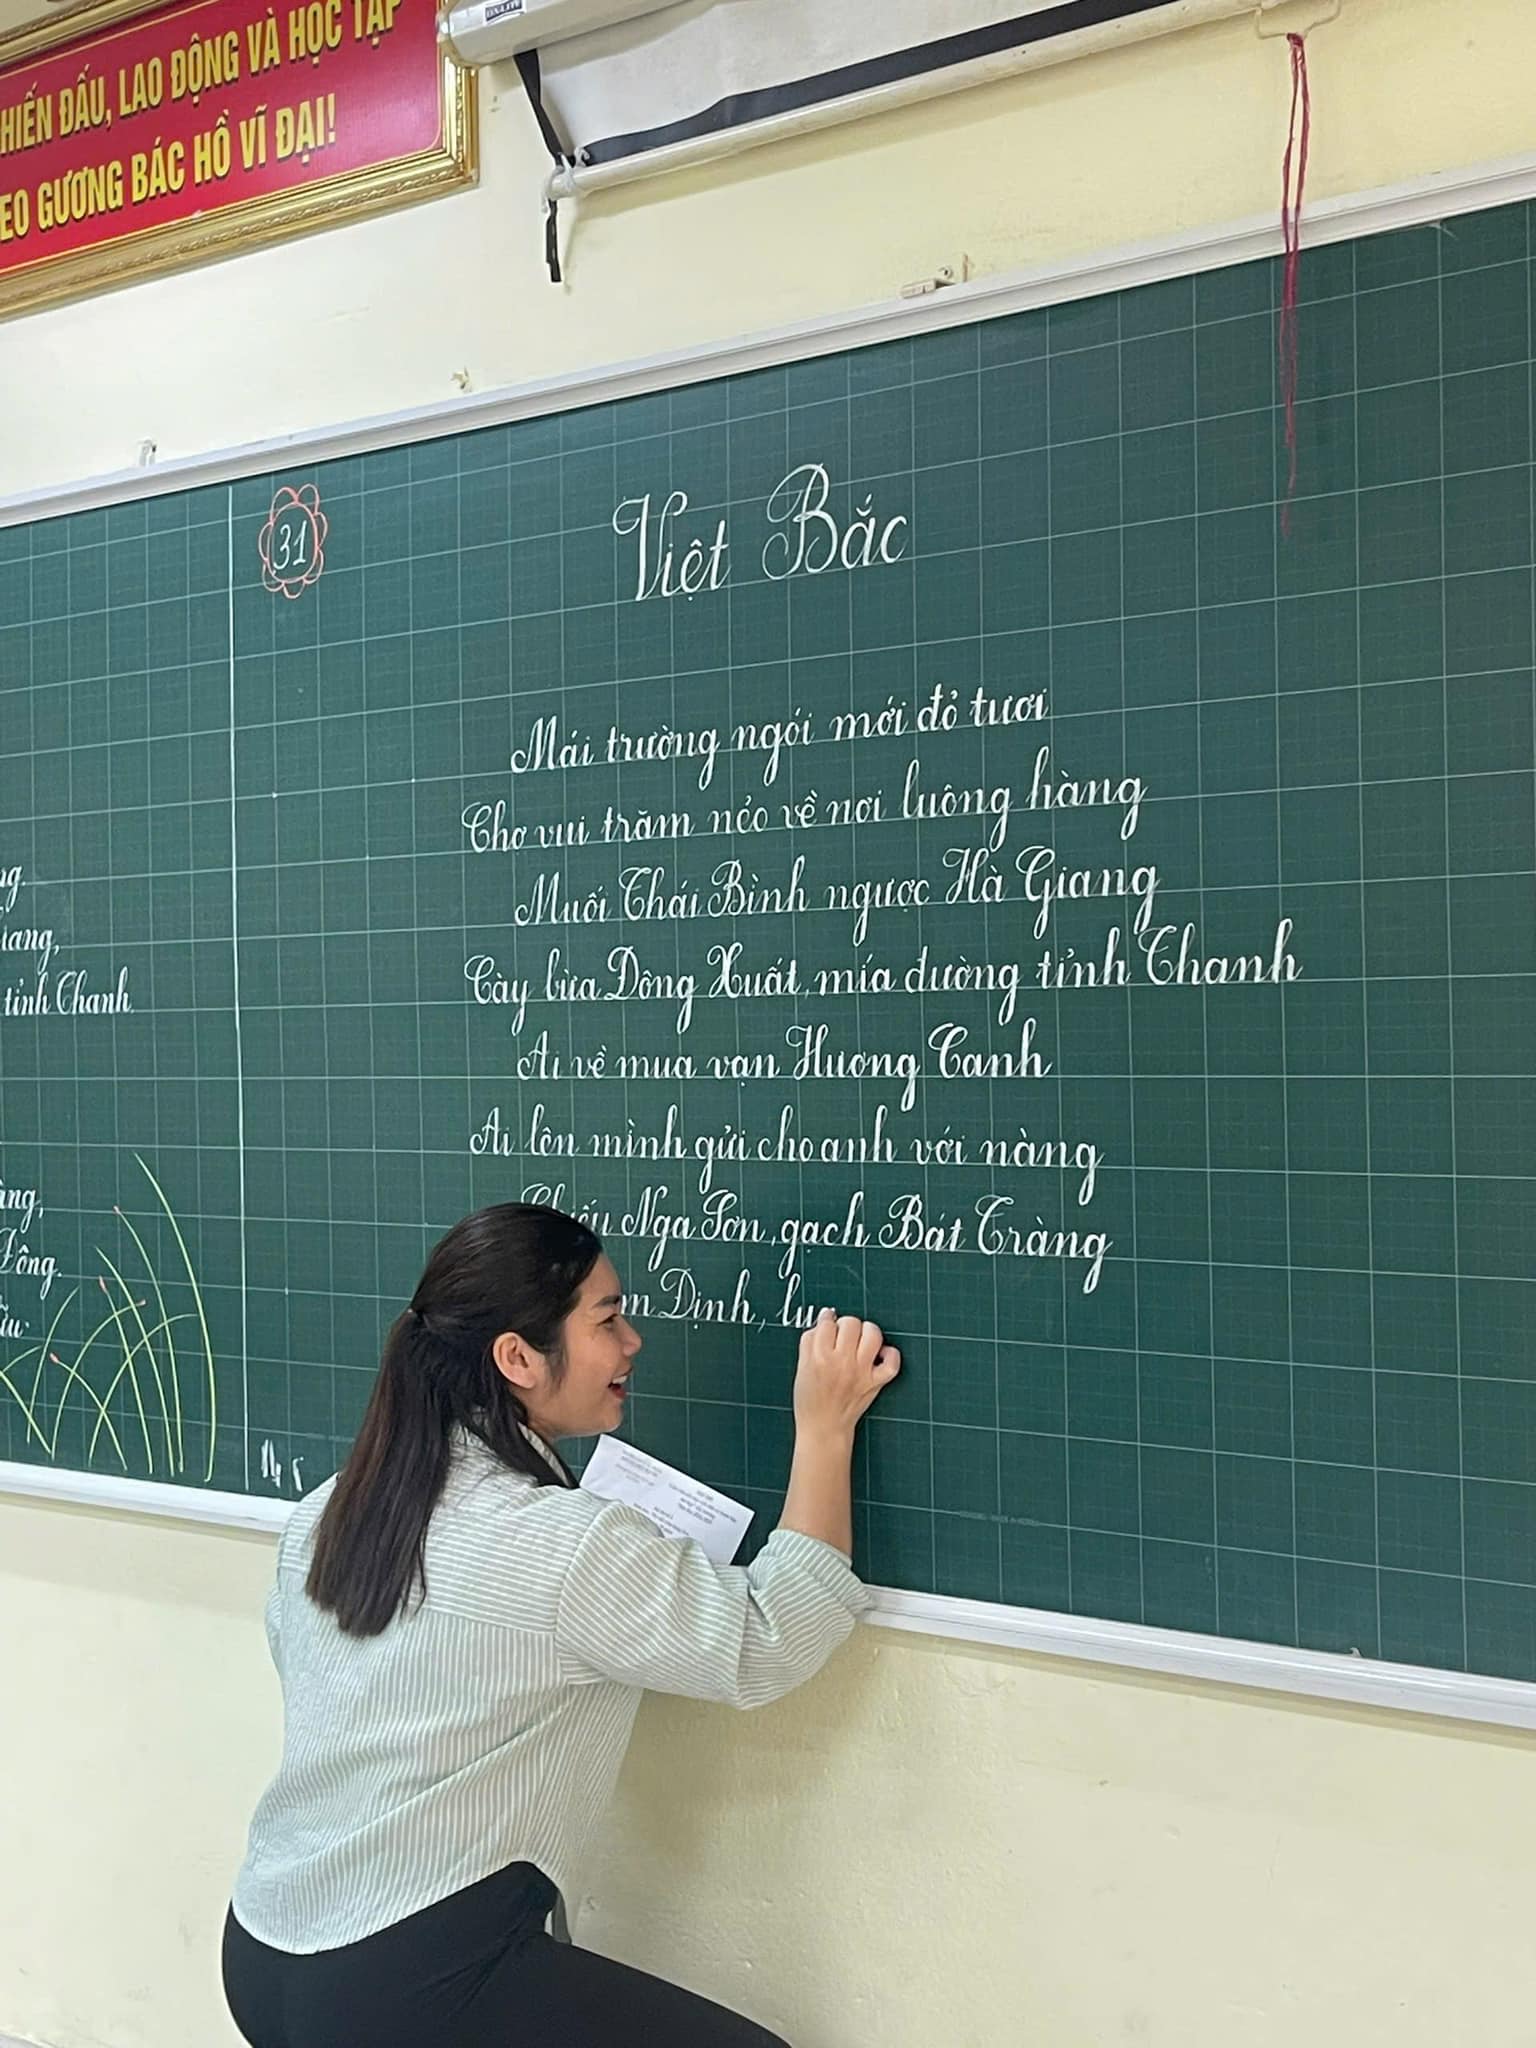 CHIẾN ĐẤU, LAO ĐỘNG VÀ HỌC TẬP
GƯƠNG BÁC HỒ VĨ ĐẠI!
DA-LITE
31
Việt Bắc
Mái trường ngói mới đỏ tươi
Chợ vui trăm nẻo về nơi luông hàng
Muối Thái Bình ngược Hà Giang
Cày bừa Đông Xuất, mía đường tỉnh Thanh
Ai về mua vạn Hương Canh
Ai lên mình gửi cho anh với nàng
Chiếu Nga Sơn, gạch Bát Tràng
Định,
tỉnh Thanh.
Đông.